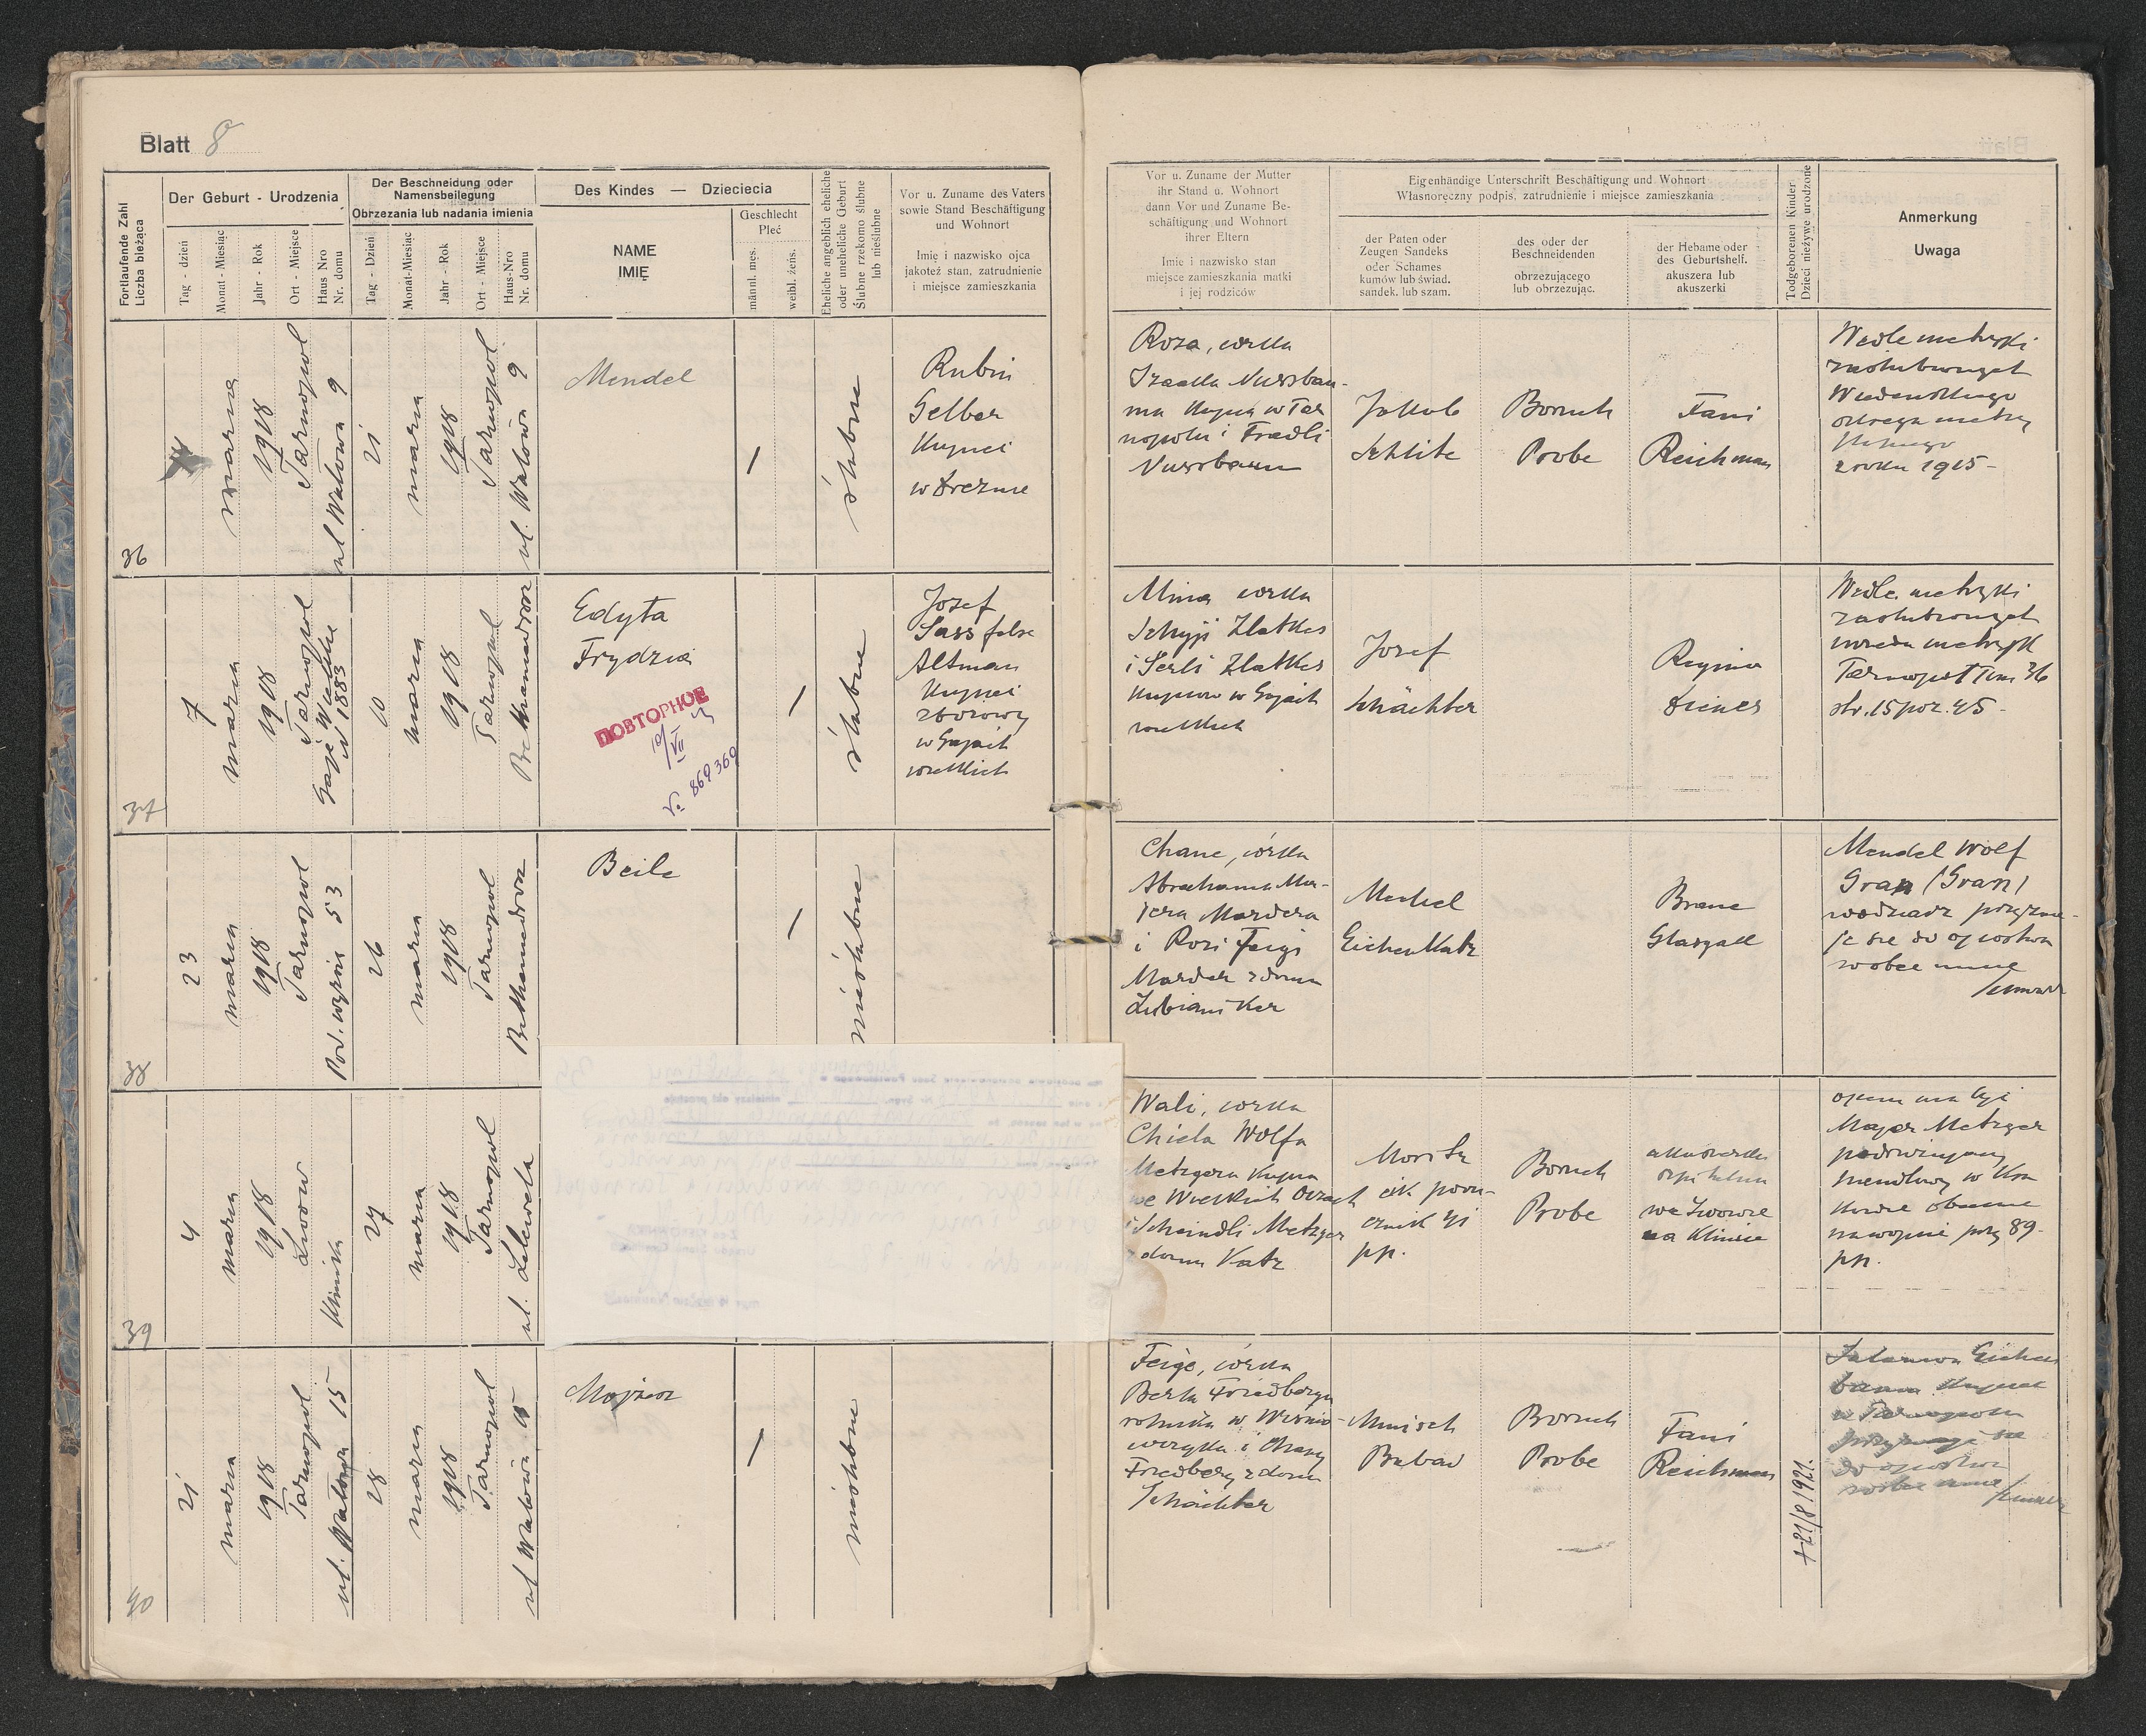 Blatt 8
Fortlaufende Zahl
Liczba bieżąca
Der Geburt - Urodzenia
Tag - dzień
Monat - Miesiąc
Jahr - Rok
Ort - Miejsce
Haus Nro
Nr. domu
Der Beschneidung oder
Namensbeilegung
Obrzezania lub nadania imienia
Tag - Dzień
Monat-Miesiąc
Jahr - Rok
Ort - Miejsce
Haus-Nro
Nr. domu
Des Kindes — Dzieciecia
NAME
IMIĘ
Geschlecht
Płeć
männl. męs.
weibl. żens.
Eheliche angeblich eheliche
oder uneheliche Geburt
Ślubne rzekomo ślubne
lub nieślubne
Vor u. Zuname des Vaters
sowie Stand Beschäftigung
und Wohnort
Imię i nazwisko ojca
jakoteż stan, zatrudnienie
i miejsce zamieszkania
Vor u. Zuname der Mutter
ihr Stand u. Wohnort
dann Vor und Zuname Be-
schäftigung und Wohnort
ihrer Eltern
Imie i nazwisko stan
miejsce zamieszkania matki
i jej rodziców
Eigenhändige Unterschrift Beschäftigung und Wohnort
Własnoręczny podpis, zatrudnienie i miejsce zamieszkania
der Paten oder
Zeugen Sandeks
oder Schames
kumów lub świad.
sandek. lub szam.
des oder der
Beschneidenden
obrzezującego
lub obrzezując.
der Hebame oder
des Geburtshelf.
akuszera lub
akuszerki
Todgeborenen Kinder
Dzieci nieżywe urodzone
Anmerkung
Uwaga
36
marca
1918
Tarnopol
ul Wałowa 9
21
marca
1918
Tarnopol
ul. Wałowa 9
Mendel
ślubne
Rubin
Gelber
Kupiec
Roza, córka
Izaaka Nussbau-
ma kupca w Tar
nopolu i Fradli
Nussbaum
Jakob
Schlite
Boruch
Probe
Fani
Reichman
Wedle metryki
zaślubionych
Wiedeńskiego
okręgu metry
kalnego
z roku 1915 -
37
7
marca
1918
Tarnopol
Gaje Wielkie
N 1883
10
marca
1918
Tarnopol
Bethamedrosz
Edyta
Frydzia
ПОВТОРНОЕ
10/VII
№ 869369
ślubne
Jozef
Sass false
Altman
Kupiec
zbożowy
w Gajach
wielkich
Mina córka
Schyji Zlatkes
i Serli Zlatkes
kupców w Gajach
wielkich
Jozef
Schächter
Regina
Diener
Wedle metryki
zaślubionych
urzędu metryk
Tarnopol Tom 36
str. 15 poz. 45 -
38
23
marca
1918
Tarnopol
Pod. wyżnie 53
26
marca
1918
Tarnopol
Bethamedrosz
Beile
nieślubne
Chane, córka
Abrahama Ma-
jera Mardera
i Rozi Feigi
Marder z domu
Lubianiker
Mechel
Eichenkatz
Brane
Glasgall
Mendel Wolf
Gran (Gran)
wobec mnie
39
4
marca
1918
Lwow
klinika
27
marca
1918
Tarnopol
ul. Lelewela
Wali, córka
Chiela Wolfa
Metzgera kupca
we Wielkich Oczach
i Scheindli Metzger
z domu Katz
Moritz
pp.
Boruch
Probe
akuszerka
szpitalna
we Lwowie
na klinice
ojcem ma być
Majer Metzger
na wojnie przy 89
pp.
40
21
marca
1918
Tarnopol
ul. Wałowa 15
28
marca
1918
Tarnopol
ul Wałowa 15
Mojżesz
nieślubne
Feige, córka
Berla Friedberga
rolnika w Wiśnio-
wczyku i Chany
Friedberg z domu
Schächter
Munisch
Babad
Boruch
Probe
Fani
Reichman
+21/8 1921.